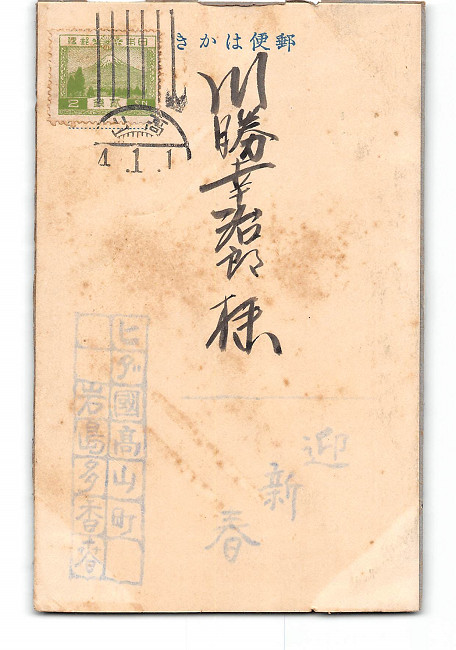 郵便はかき
日本帝國郵便
貳錢
2
高山
4.1.1
川勝幸治郎様
迎新春
ヒダ國高山町
岩島多香春